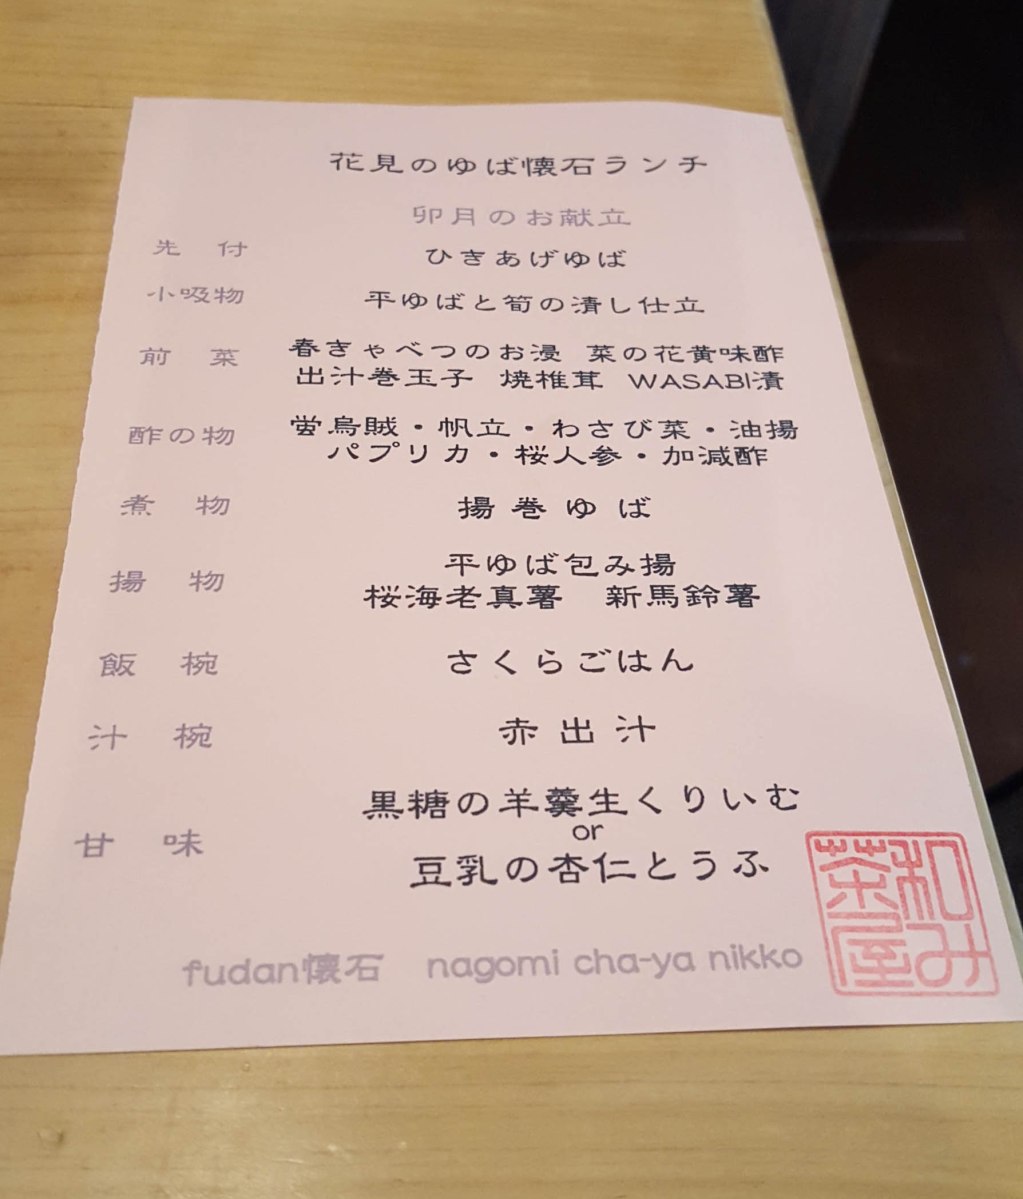 花見のゆば懐石ランチ
卯月のお献立
先 付 ひきあげゆば
小吸物 平ゆばと筍の潰し仕立
前 菜 春きゃべつのお浸 菜の花黄味酢
出汁巻玉子 焼椎茸 WASABI漬
酢の物 蛍烏賊・帆立・わさび菜・油揚
パプリカ・桜人参・加減酢
煮 物 揚巻ゆば
揚 物 平ゆば包み揚
桜海老真薯 新馬鈴薯
飯 椀 さくらごはん
汁 椀 赤出汁
甘 味 黒糖の羊羹生くりいむ
or
豆乳の杏仁とうふ
fudan懐石 nagomi cha-ya nikko
和み茶屋